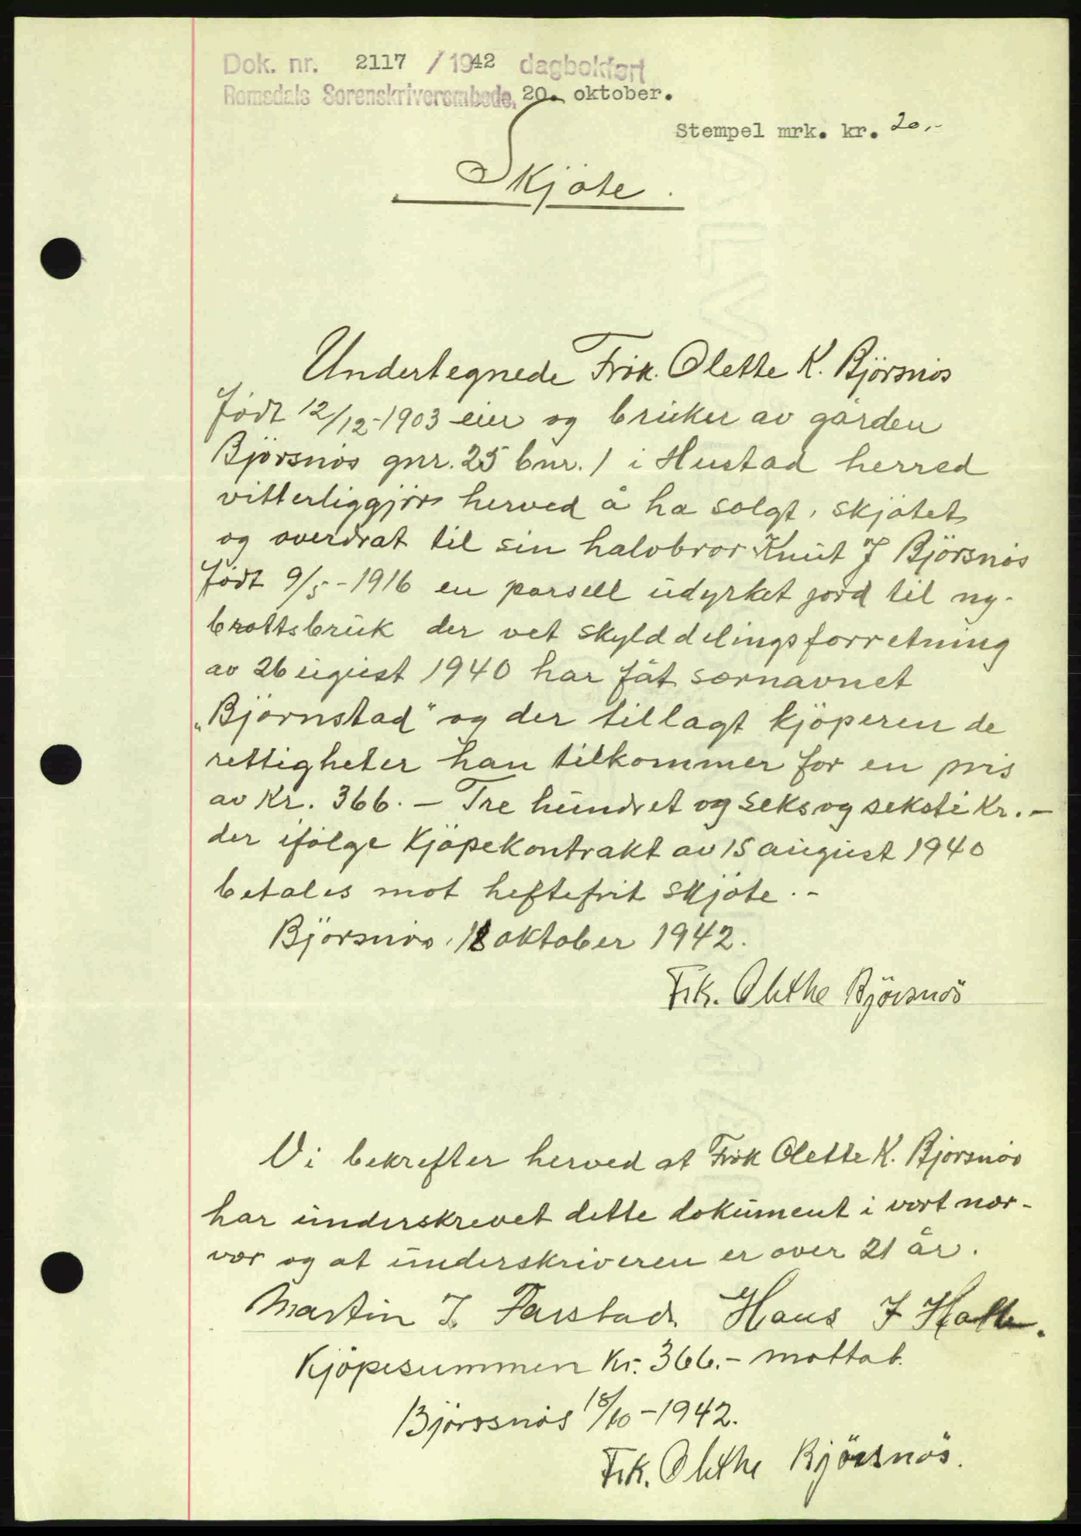 Dok. nr. 2117 / 1942 dagbokført
Romsdals Sorenskriverembede, 20. oktober.
Stempel mrk. kr. 20,-
Skjöte.
Undertegnede Frk. Olette K. Björsnös
Födt 12/12-1903 eier og bruker av gården
Björsnös gnr. 25 bnr. 1 i Hustad herred
vitterliggjör herved å ha solgt, skjötet
og overdrat til sin halvbror Knut J Björsnös
födt 9/5-1916 en parsell udyrket jord til ny-
brottsbruk der vet skylddelingsforretning
av 26 august 1940 har fåt særnavnet
„Björnstad" og der tillagt kjöperen de
rettigheter han tilkommer for en pris
av Kr. 366.- Tre hundret og seks og seksti Kr.-
der ifölge Kjöpekontrakt av 15 august 1940
betales mot heftefrit skjöte.-
Björsnös, 18 oktober 1942.
Frk. Olethe Björsnös
Vi bekrefter herved at Frk Olette K. Björsnös
har underskrevet dette dokument i vort nær-
vær og at underskriveren er over 21 år.
Martin J. Farstad. Hans J Halle.
Kjöpesummen Kr. 366.- mottat.
Björssnös 18/10-1942.
Frk. Olethe Björsnös.